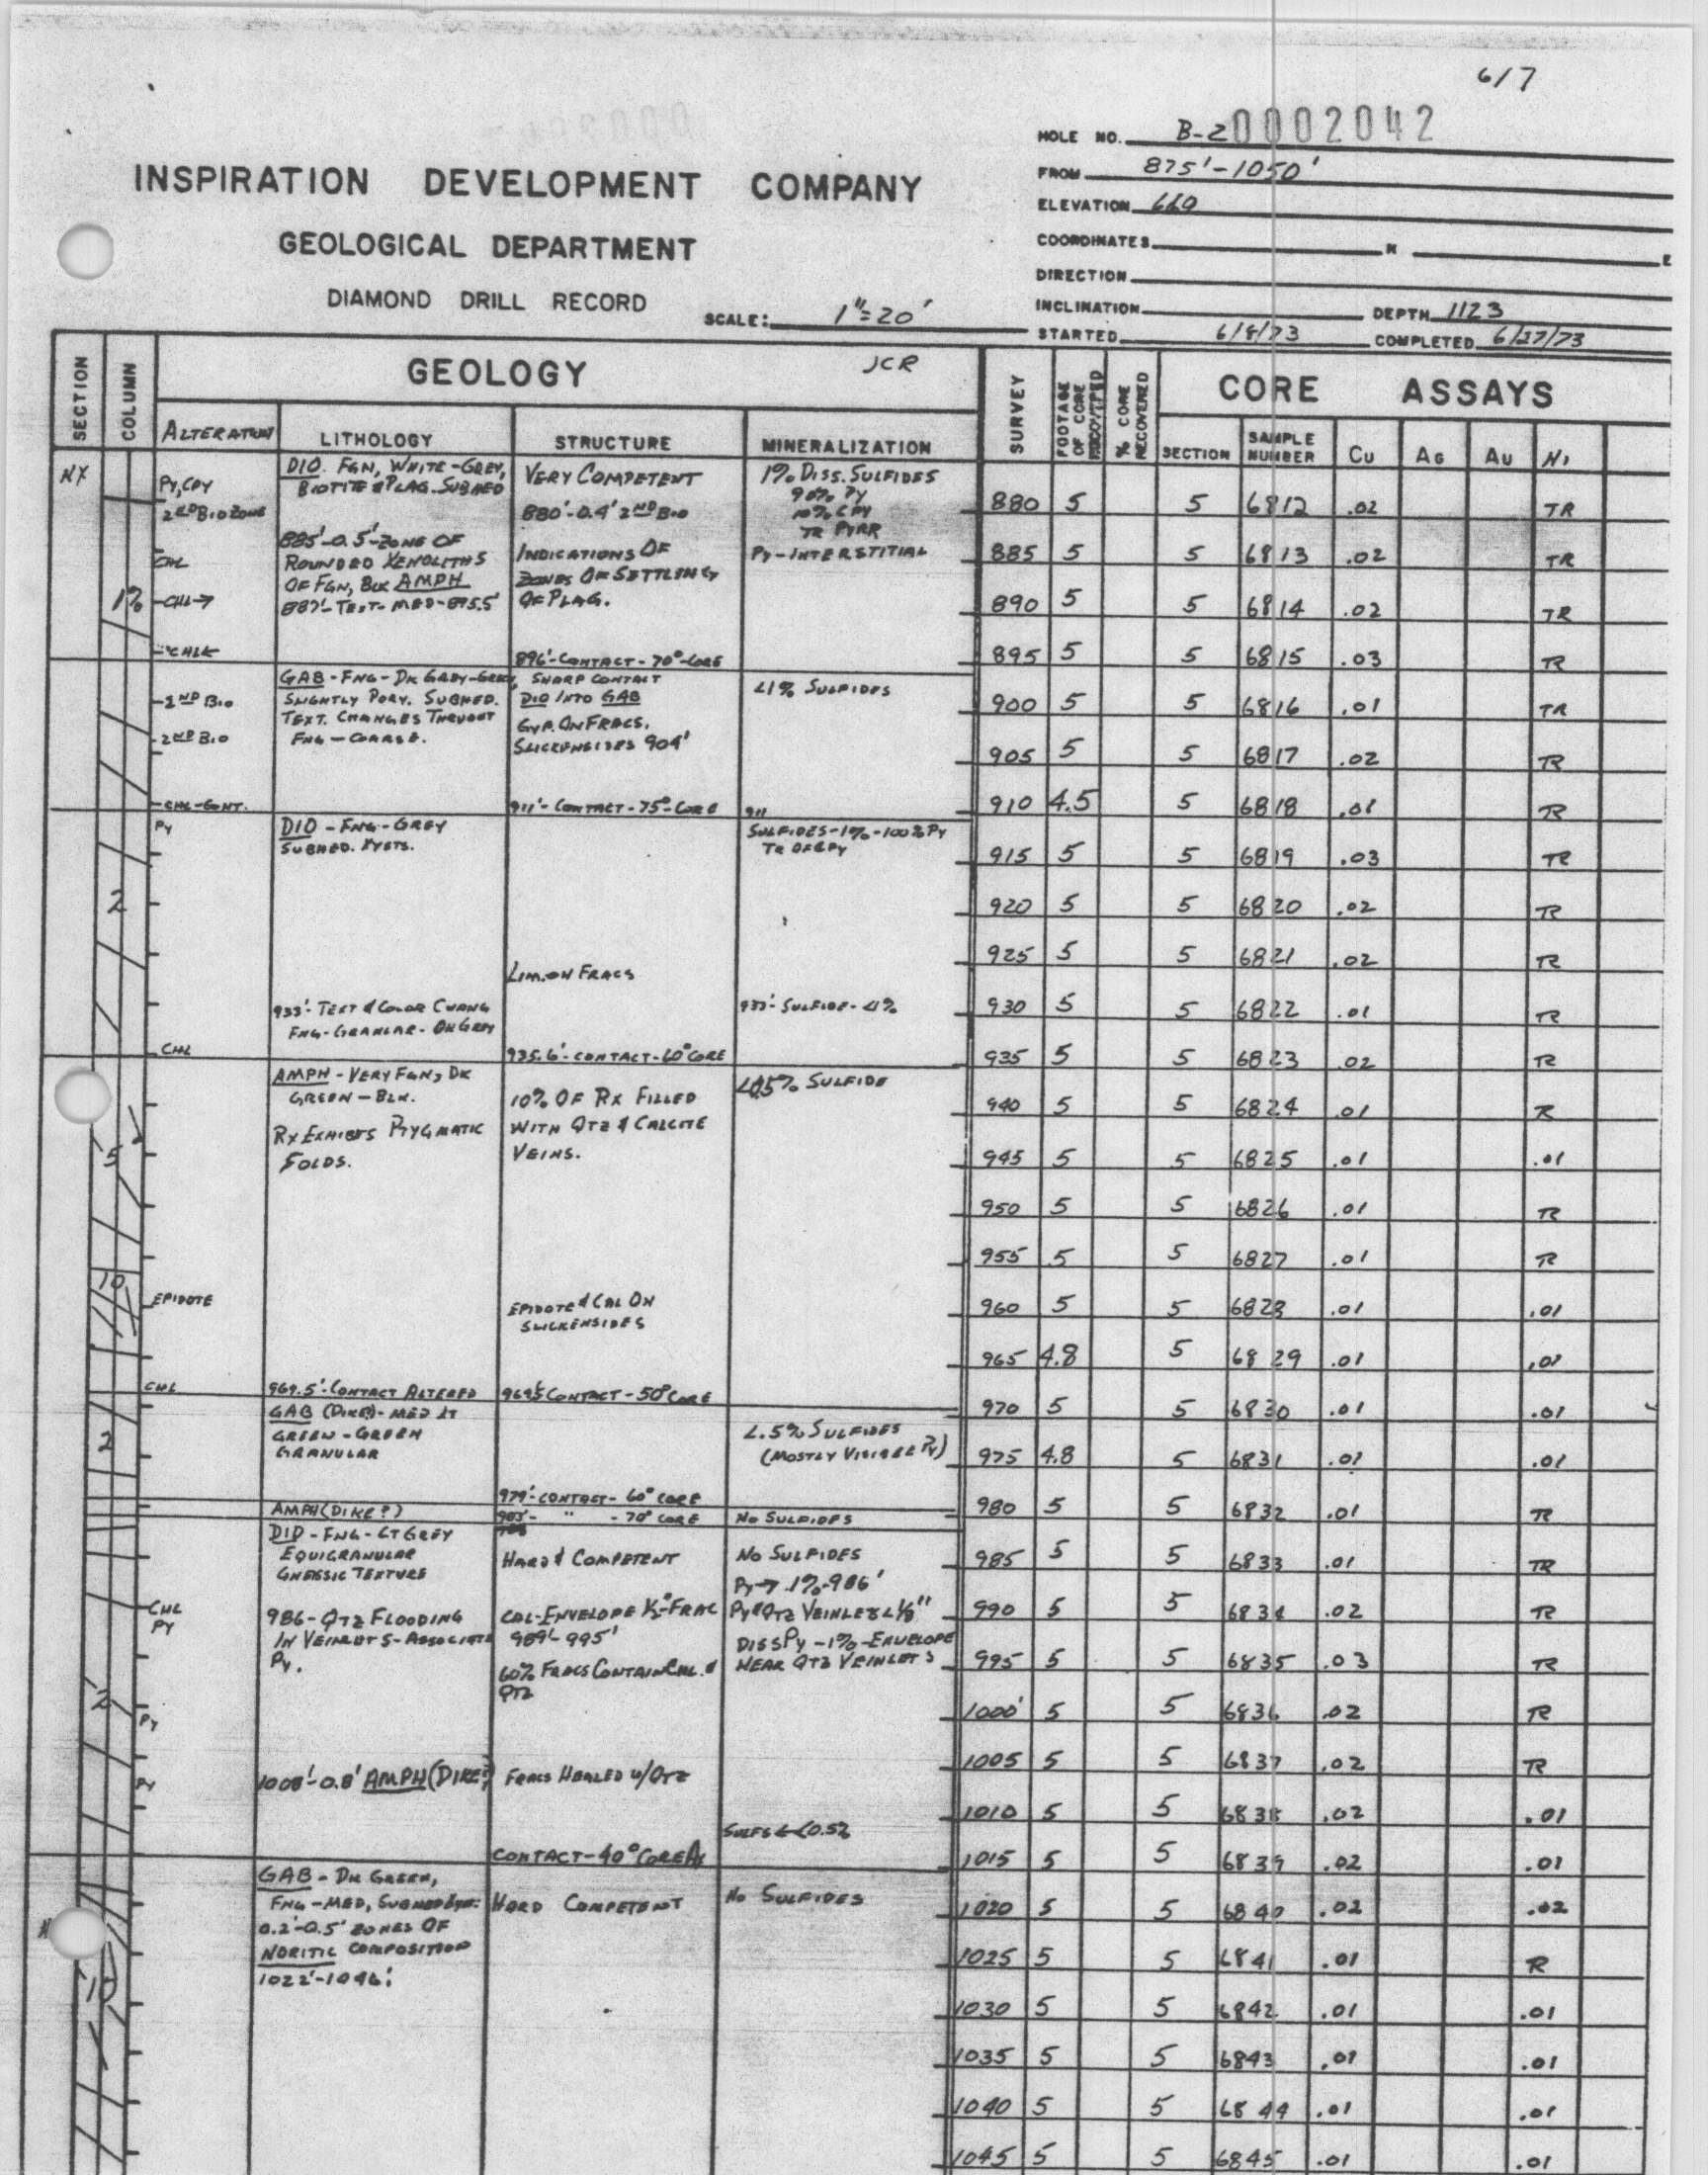 6/7
HOLE NO. B-2 0002042
FROM 875'-1050'
INSPIRATION DEVELOPMENT COMPANY
ELEVATION 660
GEOLOGICAL DEPARTMENT
COORDINATES N E
DIRECTION
DIAMOND DRILL RECORD
SCALE: 1"=20'
INCLINATION DEPTH 1123
STARTED 6/8/73 COMPLETED 6/27/73
SECTION COLUMN GEOLOGY JCR
ALTERATION LITHOLOGY STRUCTURE MINERALIZATION
SURVEY
FOOTAGE OF CORE
% CORE RECOVERED
CORE ASSAYS
SECTION SAMPLE NUMBER Cu AG AU Ni
NX
1%
2
5
10
2
2
10
PY, CPY
2ND BIO ZONE
CHL
CHL→
CHL←
2ND BIO
2ND BIO
CHL-CONT.
PY
CHL
EPIDOTE
CHL
CHL
PY
PY
PY
DIO. FGN, WHITE-GREY,
BIOTITE & PLAG. SUBHED
885'-0.5'-ZONE OF
ROUNDED XENOLITHS
OF FGN, BLK AMPH
887'-TEXT-MED-895.5'
GAB-FNG-DK GREY-GREEN,
SLIGHTLY PORY. SUBHED.
TEXT. CHANGES THRUOUT
FNG-COARSE.
DIO-FNG-GREY
SUBHED. XYSTS.
933'-TEXT & COLOR CHANG
FNG-GRANLAR-DK GREY
AMPH-VERY FGN, DK
GREEN-BLK.
RX EXHIBITS PTYGMATIC
FOLDS.
969.5'-CONTACT ALTERED
GAB (DIKE)-MED LT
GREEN-GREEN
GRANULAR
AMPH (DIKE?)
DIO-FNG-LT GREY
EQUIGRANULAR
GNEISSIC TEXTURE
986-QTZ FLOODING
IN VEINLETS-ASSOCIATE
PY.
1008'-0.8' AMPH (DIKE?)
GAB-DK GREEN,
FNG-MED, SUBHED
0.2'-0.5' ZONES OF
NORITIC COMPOSITION
1022'-1046'.
VERY COMPETENT
880'-0.4' 2ND BIO
INDICATIONS OF
ZONES OF SETTLING
OF PLAG.
896'-CONTACT-70°-CORE
SHARP CONTACT
DIO INTO GAB
GYP. ON FRACS.
SLICKENSIDES 904'
911'-CONTACT-75°-CORE
LIM. ON FRACS
935.6'-CONTACT-60° CORE
10% OF RX FILLED
WITH QTZ & CALCITE
VEINS.
EPIDOTE & CAL ON
SLICKENSIDES
969.5' CONTACT-50° CORE
979'-CONTACT-60° CORE
983'- " -70° CORE
HARD & COMPETENT
CAL-ENVELOPE 1/2"-FRAC
989'-995'
60% FRACS CONTAIN CAL. &
QTZ
FRACS HEALED W/QTZ
CONTACT-40° CORE AX
HARD COMPETENT
1% DISS. SULFIDES
90% PY
10% CPY
TR PYRR
PY-INTERSTITIAL
<1% SULFIDES
911
SULFIDES-1%-100% PY
TR OF CPY
933'-SULFIDE-<1%
<0.5% SULFIDE
<.5% SULFIDES
(MOSTLY VISIBLE PY)
NO SULFIDES
NO SULFIDES
PY→1%-986'
PY & QTZ VEINLETS <1/8"
DISS PY-1%-ENVELOPE
NEAR QTZ VEINLETS
SULFS <<0.5%
NO SULFIDES
880 5 5 6812 .02 TR
885 5 5 6813 .02 TR
890 5 5 6814 .02 TR
895 5 5 6815 .03 TR
900 5 5 6816 .01 TR
905 5 5 6817 .02 TR
910 4.5 5 6818 .01 TR
915 5 5 6819 .03 TR
920 5 5 6820 .02 TR
925 5 5 6821 .02 TR
930 5 5 6822 .01 TR
935 5 5 6823 .02 TR
940 5 5 6824 .01 TR
945 5 5 6825 .01 .01
950 5 5 6826 .01 TR
955 5 5 6827 .01 TR
960 5 5 6828 .01 .01
965 4.8 5 6829 .01 .01
970 5 5 6830 .01 .01
975 4.8 5 6831 .01 .01
980 5 5 6832 .01 TR
985 5 5 6833 .01 TR
990 5 5 6834 .02 TR
995 5 5 6835 .03 TR
1000' 5 5 6836 .02 TR
1005 5 5 6837 .02 TR
1010 5 5 6838 .02 .01
1015 5 5 6839 .02 .01
1020 5 5 6840 .02 .02
1025 5 5 6841 .01 TR
1030 5 5 6842 .01 .01
1035 5 5 6843 .01 .01
1040 5 5 6844 .01 .01
1045 5 5 6845 .01 .01